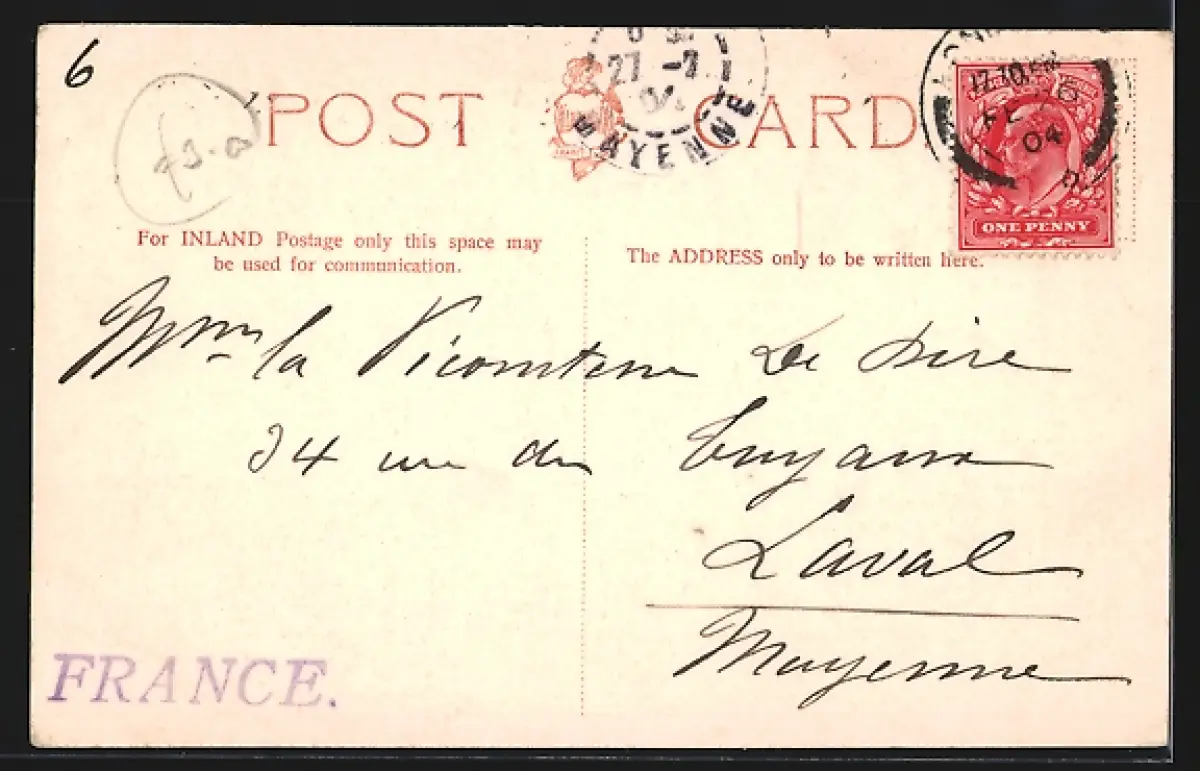 6
POST CARD
£3.00
27 -7
04
MAYENNE
12.30 PM
04
ONE PENNY
For INLAND Postage only this space may
be used for communication.
The ADDRESS only to be written here.
Mme la Vicomtesse De
34 rue du
Laval
Mayenne
FRANCE.